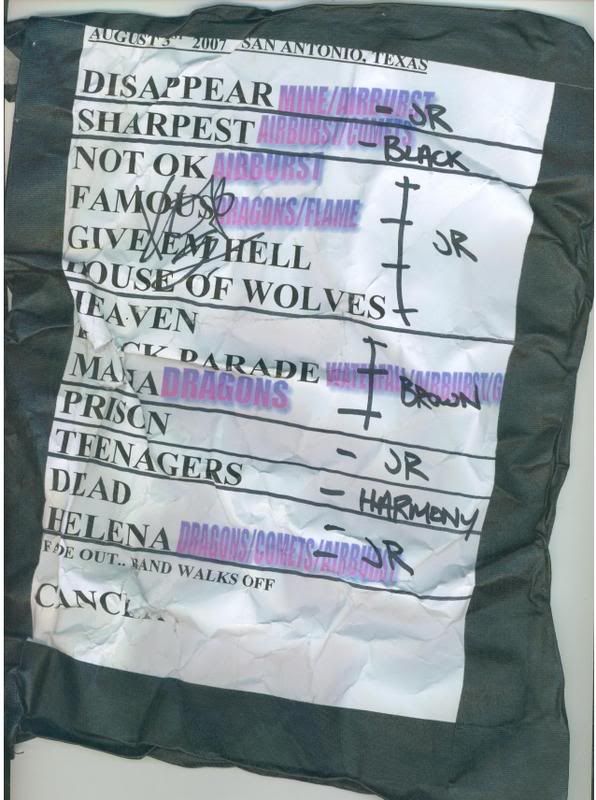 AUGUST 3RD 2007 SAN ANTONIO, TEXAS
DISAPPEAR MINE/AIRBURST - JR
SHARPEST AIRBURST/COMETS - BLACK
NOT OK AIRBURST
FAMOUS DRAGONS/FLAME
GIVE EM HELL JR
HOUSE OF WOLVES
HEAVEN
PARADE WATERFALL/AIRBURST/G
MAMA DRAGONS BROWN
PRISON - JR
TEENAGERS - HARMONY
DEAD -
HELENA DRAGONS/COMETS/AIRBURST - JR
FADE OUT.. BAND WALKS OFF
CANCER